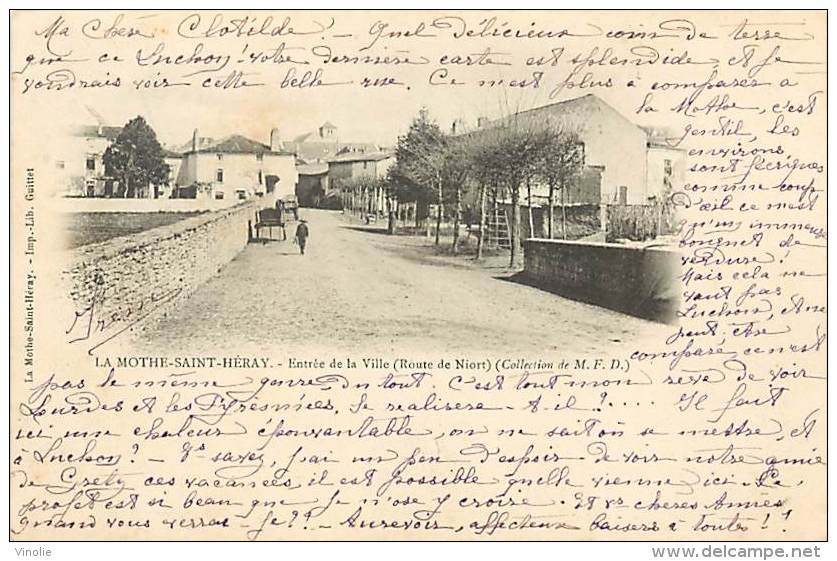 Ma Chère Clotilde! - Quel délicieux coin de terre
que ce Luchon! votre dernière carte est splendide et je
voudrais voir cette belle rue. Ce n'est plus à comparer à
la Mothe, c'est
gentil, les
environs
sont féeriques
comme coup
d'œil ce n'est
qu'un immense
bouquet de
verdure!
Mais cela ne
vaut pas
Luchon, et ne
peut être
comparé, ce n'est
pas le même genre du tout. C'est tout mon rêve de voir
Lourdes et les Pyrénnées, se realisera-t-il? .... Il fait
ici une chaleur épouvantable, on ne sait où se mettre, et
à Luchon? - Vs savez, j'ai un peu d'espoir de voir notre amie
de Grety ces vacances, il est possible quelle vienne ici. Ce
projet est si beau que je n'ose y croire. Et vs chères Amies
quand vous verrai-je?? - Aurevoir, affectueux baisers à toutes!!
Irène
La Mothe-Saint-Héray. - Imp.-Lib. Guittet
LA MOTHE-SAINT-HÉRAY. - Entrée de la Ville (Route de Niort) (Collection de M. F. D.)
Vinolie
http://www.delcampe.net